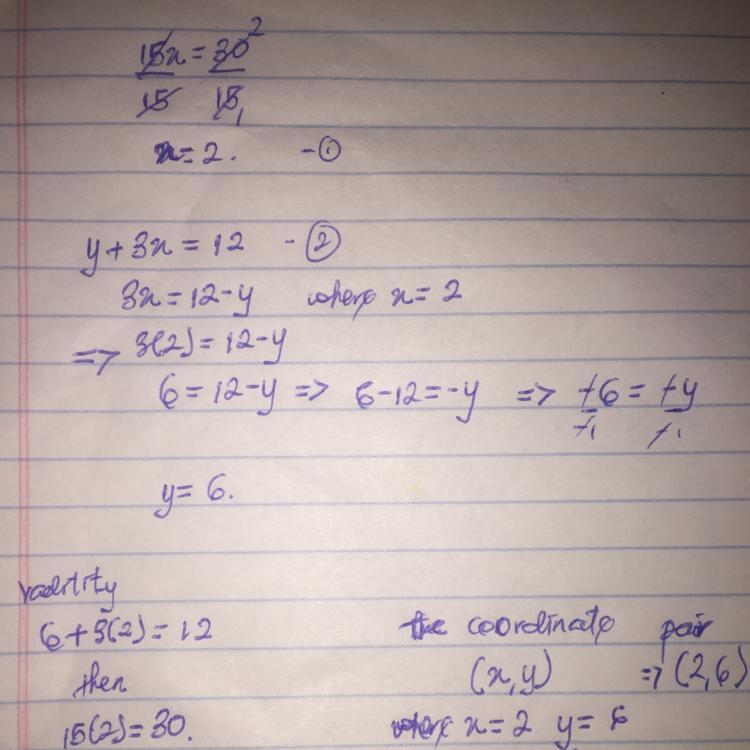 15x = 30 2
15 15 1
x = 2. - ①
y + 3x = 12 - ②
3x = 12 - y where x = 2
=> 3(2) = 12 - y
6 = 12 - y => 6 - 12 = -y => -6 = -y
-1 -1
y = 6.
6 + 3(2) = 12
then
15(2) = 30.
the coordinate pair
(x, y) => (2, 6)
where x = 2 y = 6